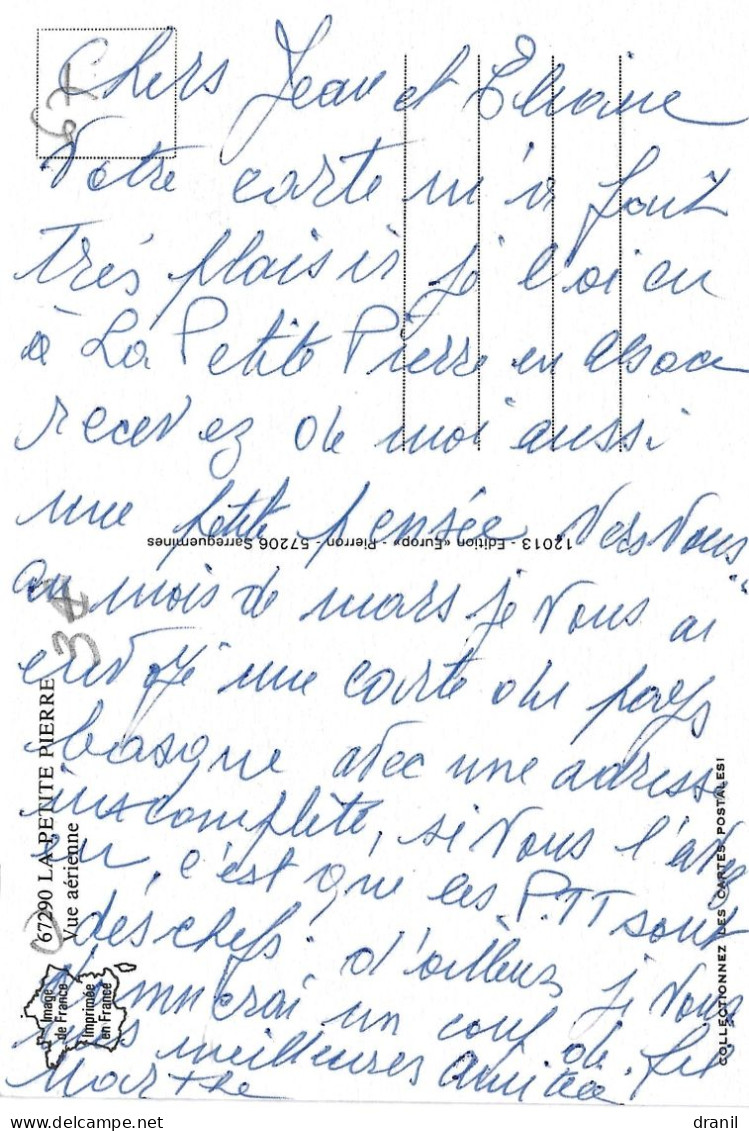 Chers Jean et Eliane
Votre carte m'a fait
très plaisir je l'ai eu
à La Petite Pierre en alsace
recevez de moi aussi
une petite pensée vers vous
au mois de mars je vous ai
envoyé une carte du pays
basque avec une adresse
incomplète, si vous l'avez
eu, c'est que les PTT sont
des chefs. d'ailleurs je vous
donnerai un coup de fil
mes meilleures amitiés
Marthe
67
34
67290 LA PETITE PIERRE
Vue aérienne
Image
de France
Imprimée
en France
12013 - Edition «Europ» - Pierron - 57206 Sarreguemines
COLLECTIONNEZ LES CARTES POSTALES!
dranil